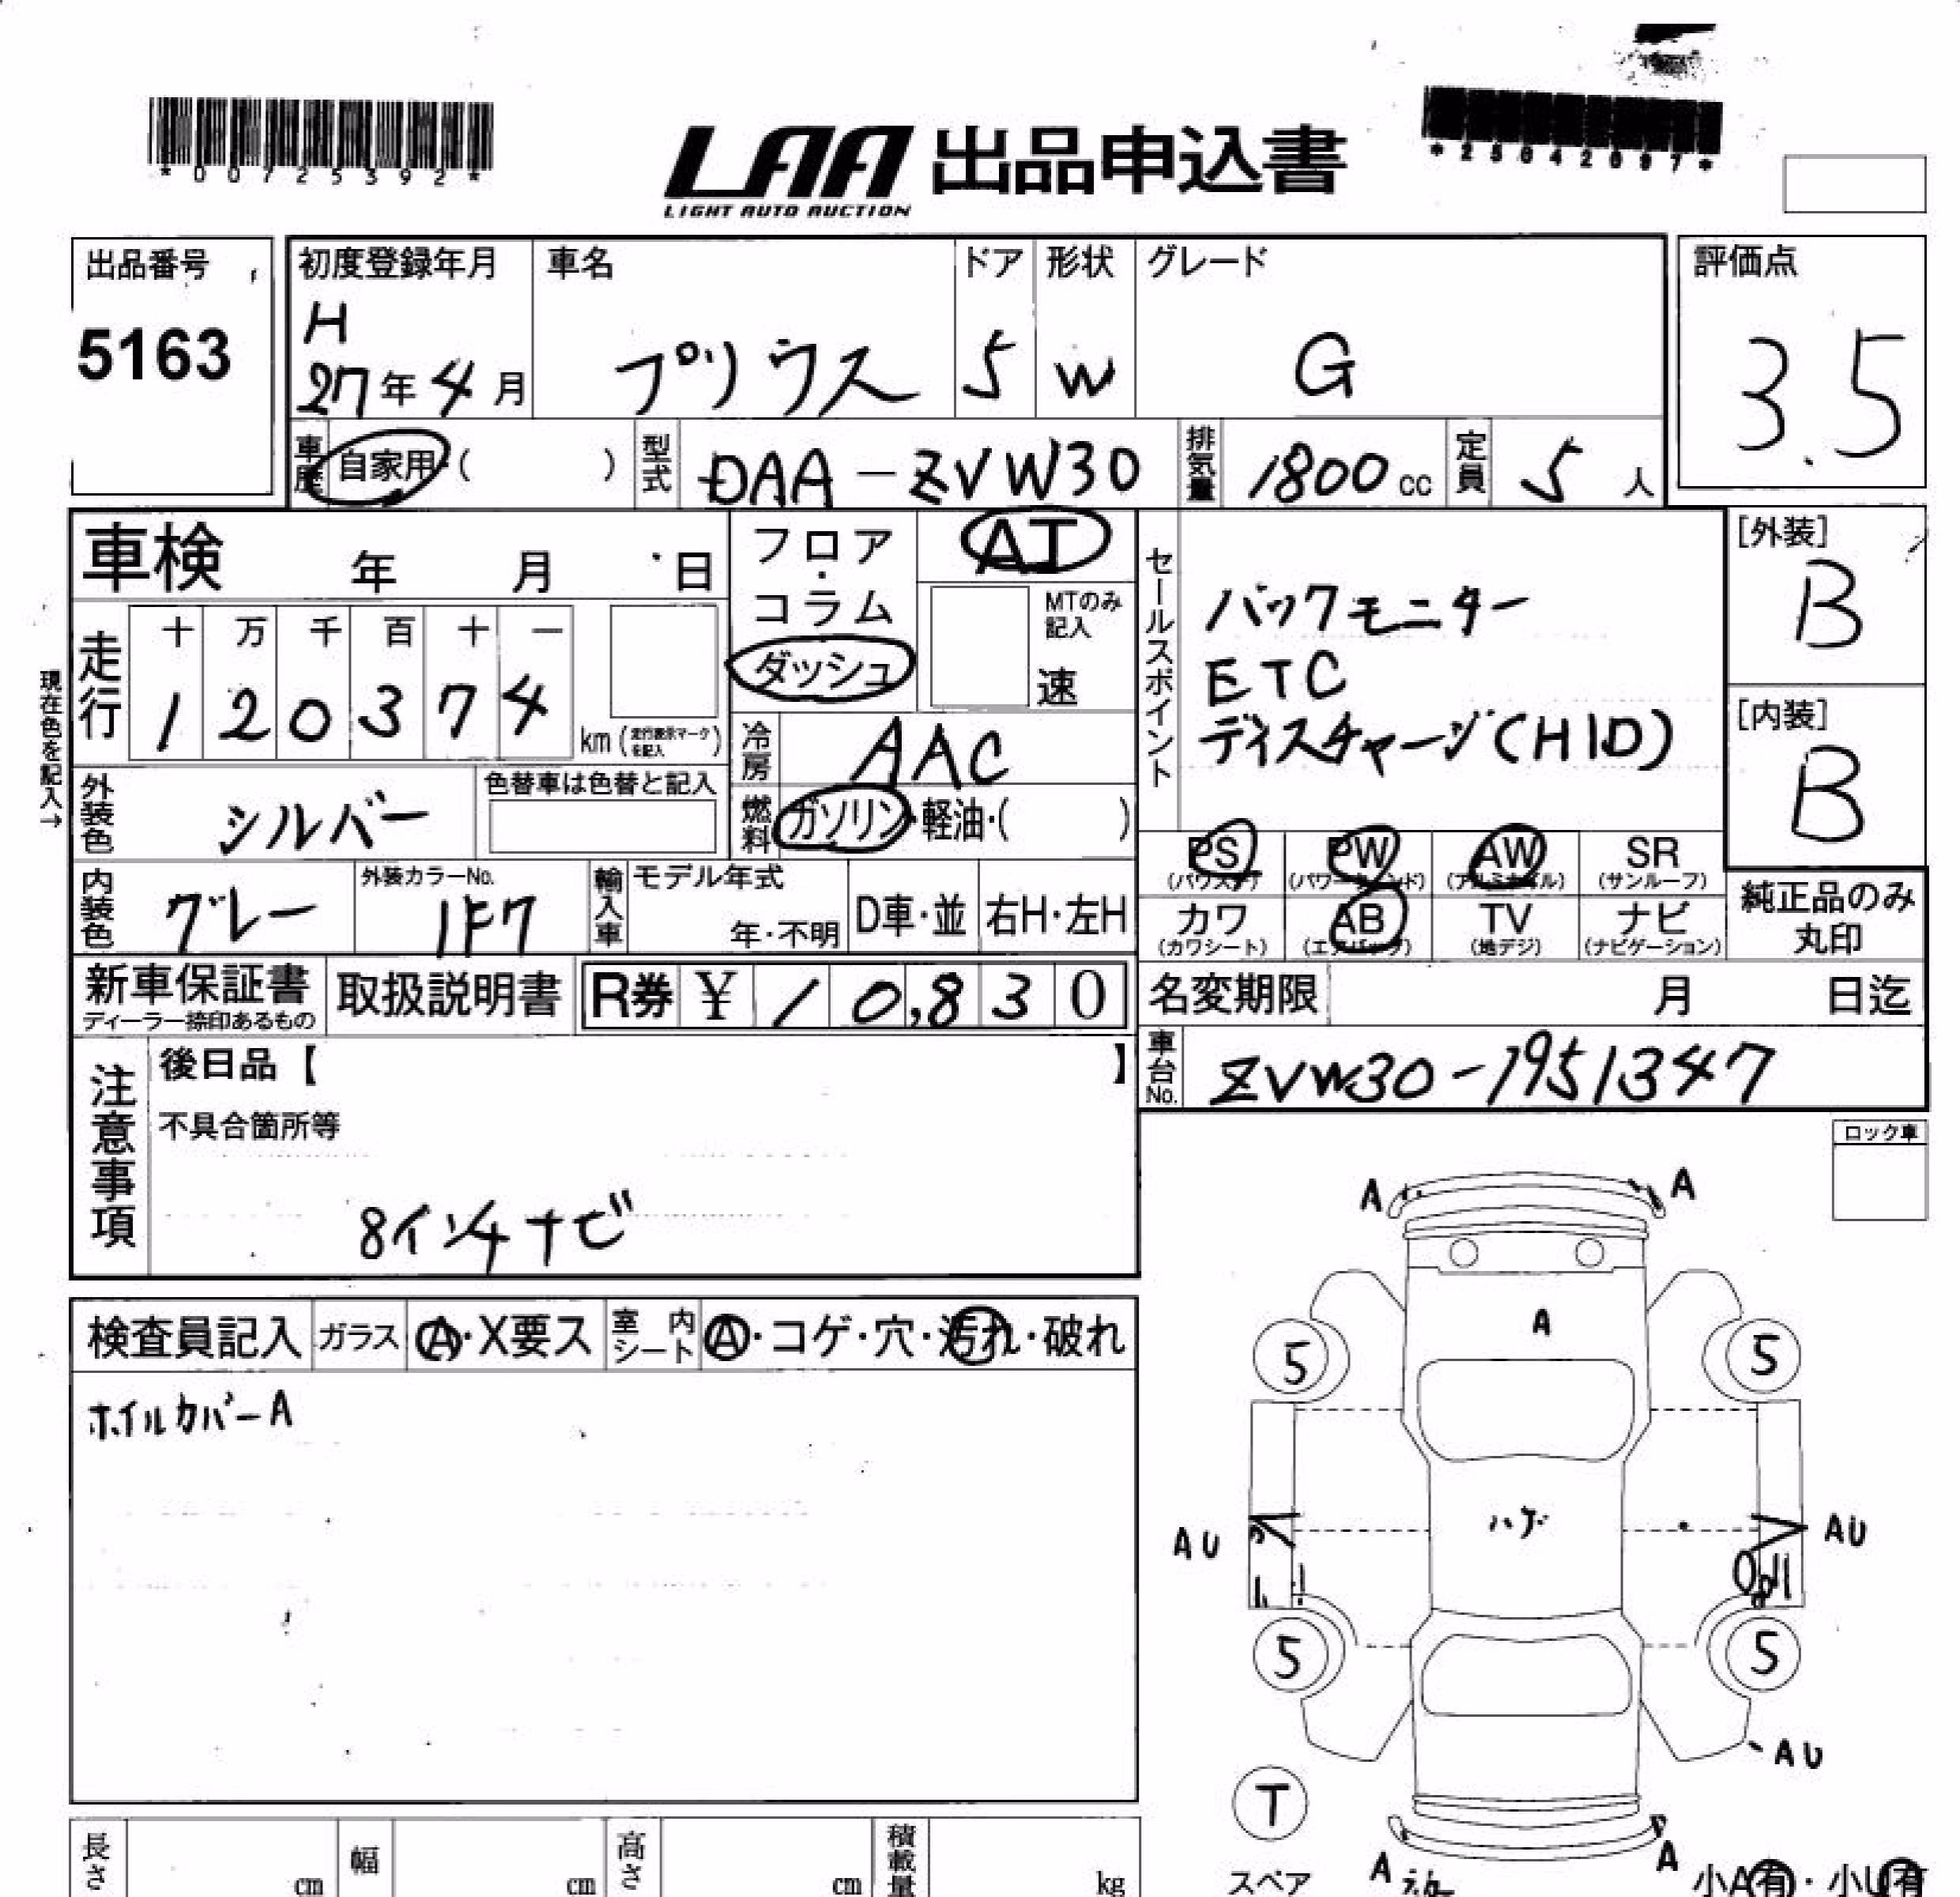 *00725392*
LAA 出品申込書
LIGHT AUTO AUCTION
*25042097*
出品番号
5163
初度登録年月
H
27年4月
車名
プリウス
ドア
5
形状
W
グレード
G
評価点
3.5
車歴
自家用・( )
型式
DAA-ZVW30
排気量
1800cc
定員
5人
車検 年 月 日
フロア・コラム
ダッシュ
AT
MTのみ記入
速
セールスポイント
バックモニター
ETC
ディスチャージ(HID)
[外装]
B
[内装]
B
現在色を記入→
走行
十 万 千 百 十 一
1 2 0 3 7 4
km(走行表示マークを記入)
冷房
AAC
燃料
ガソリン・軽油・( )
外装色
シルバー
色替車は色替と記入
内装色
グレー
外装カラーNo.
1F7
輸入車
モデル年式
年・不明
D車・並
右H・左H
PS
(パワステ)
PW
(パワーウインド)
AW
(アルミホイル)
SR
(サンルーフ)
カワ
(カワシート)
AB
(エアバッグ)
TV
(地デジ)
ナビ
(ナビゲーション)
純正品のみ
丸印
新車保証書
ディーラー捺印あるもの
取扱説明書
R券 ¥ 10,830
名変期限 月 日迄
車台No.
ZVW30-1951347
注意事項
後日品【 】
不具合箇所等
8インチナビ
ロック車
検査員記入
ガラス
A・X要ス
室内シート
A・コゲ・穴・汚れ・破れ
ホイルカバーA
A
A
A
5
5
ハゲ
AU
AU
5
5
AU
T
スペア
A
A
小A有・小U有
長さ cm
幅 cm
高さ cm
積載量 kg